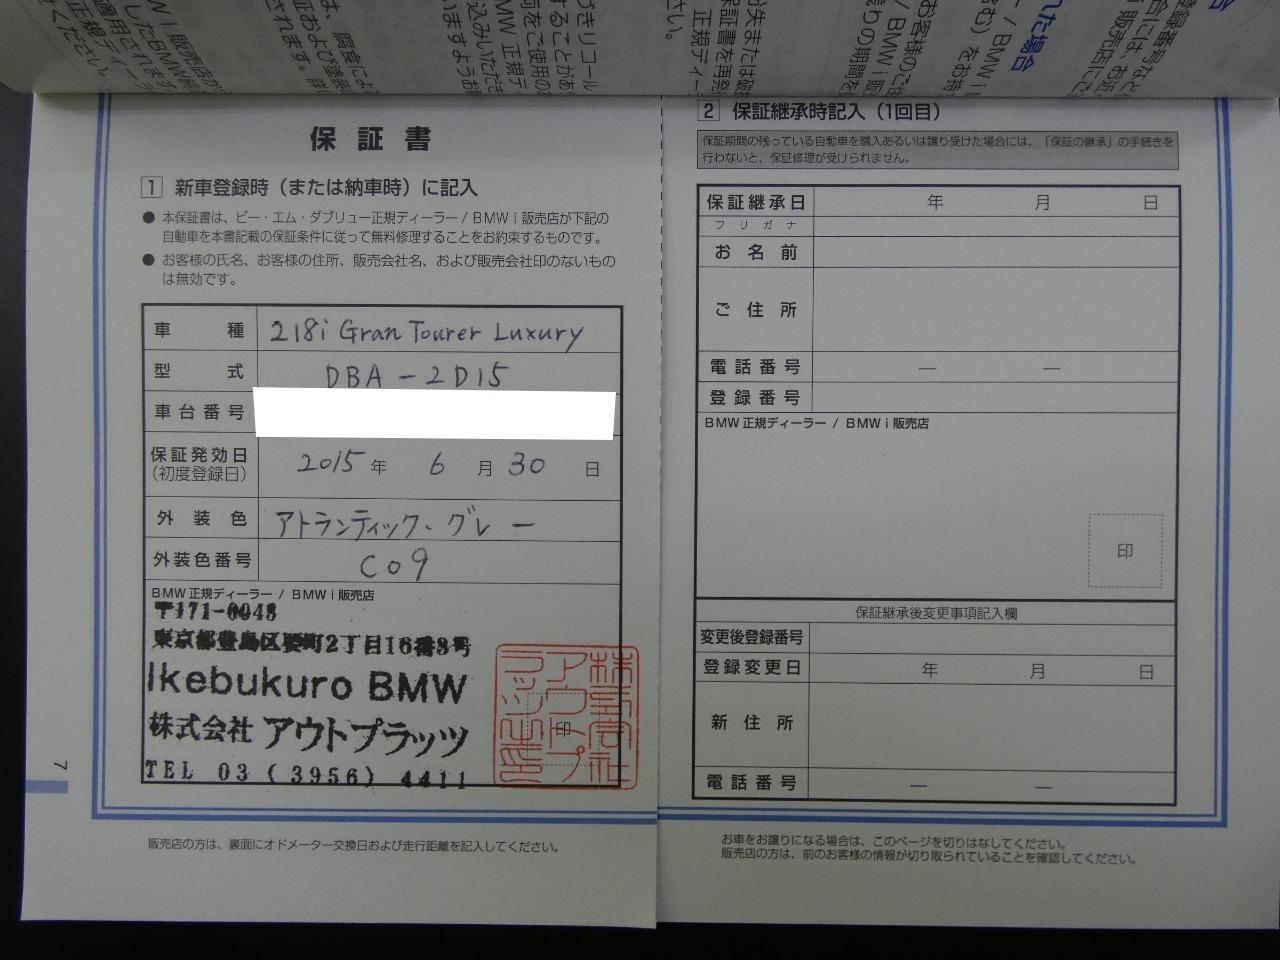 保証書
1 新車登録時（または納車時）に記入
● 本保証書は、ビー・エム・ダブリュー正規ディーラー / BMW i 販売店が下記の
自動車を本書記載の保証条件に従って無料修理することをお約束するものです。
● お客様の氏名、お客様の住所、販売会社名、および販売会社印のないもの
は無効です。
車種 218i Gran Tourer Luxury
型式 DBA-2D15
車台番号
保証発効日
（初度登録日） 2015年 6月30日
外装色 アトランティック・グレー
外装色番号 C09
BMW 正規ディーラー / BMW i 販売店
〒171-0043
東京都豊島区要町2丁目16番8号
Ikebukuro BMW
株式会社 アウトプラッツ
TEL 03 (3956) 4411
印
株式会社
アウトプ
ラッツ之印
7
販売店の方は、裏面にオドメーター交換日および走行距離を記入してください。
2 保証継承時記入（1回目）
保証期間の残っている自動車を購入あるいは譲り受けた場合には、「保証の継承」の手続きを
行わないと、保証修理が受けられません。
保証継承日 年 月 日
フリガナ
お名前
ご住所
電話番号 — —
登録番号
BMW 正規ディーラー / BMW i 販売店
印
保証継承後変更事項記入欄
変更後登録番号
登録変更日 年 月 日
新住所
電話番号 — —
お車をお譲りになる場合は、このページを切りはなしてください。
販売店の方は、前のお客様の情報が切り取られていることを確認してください。